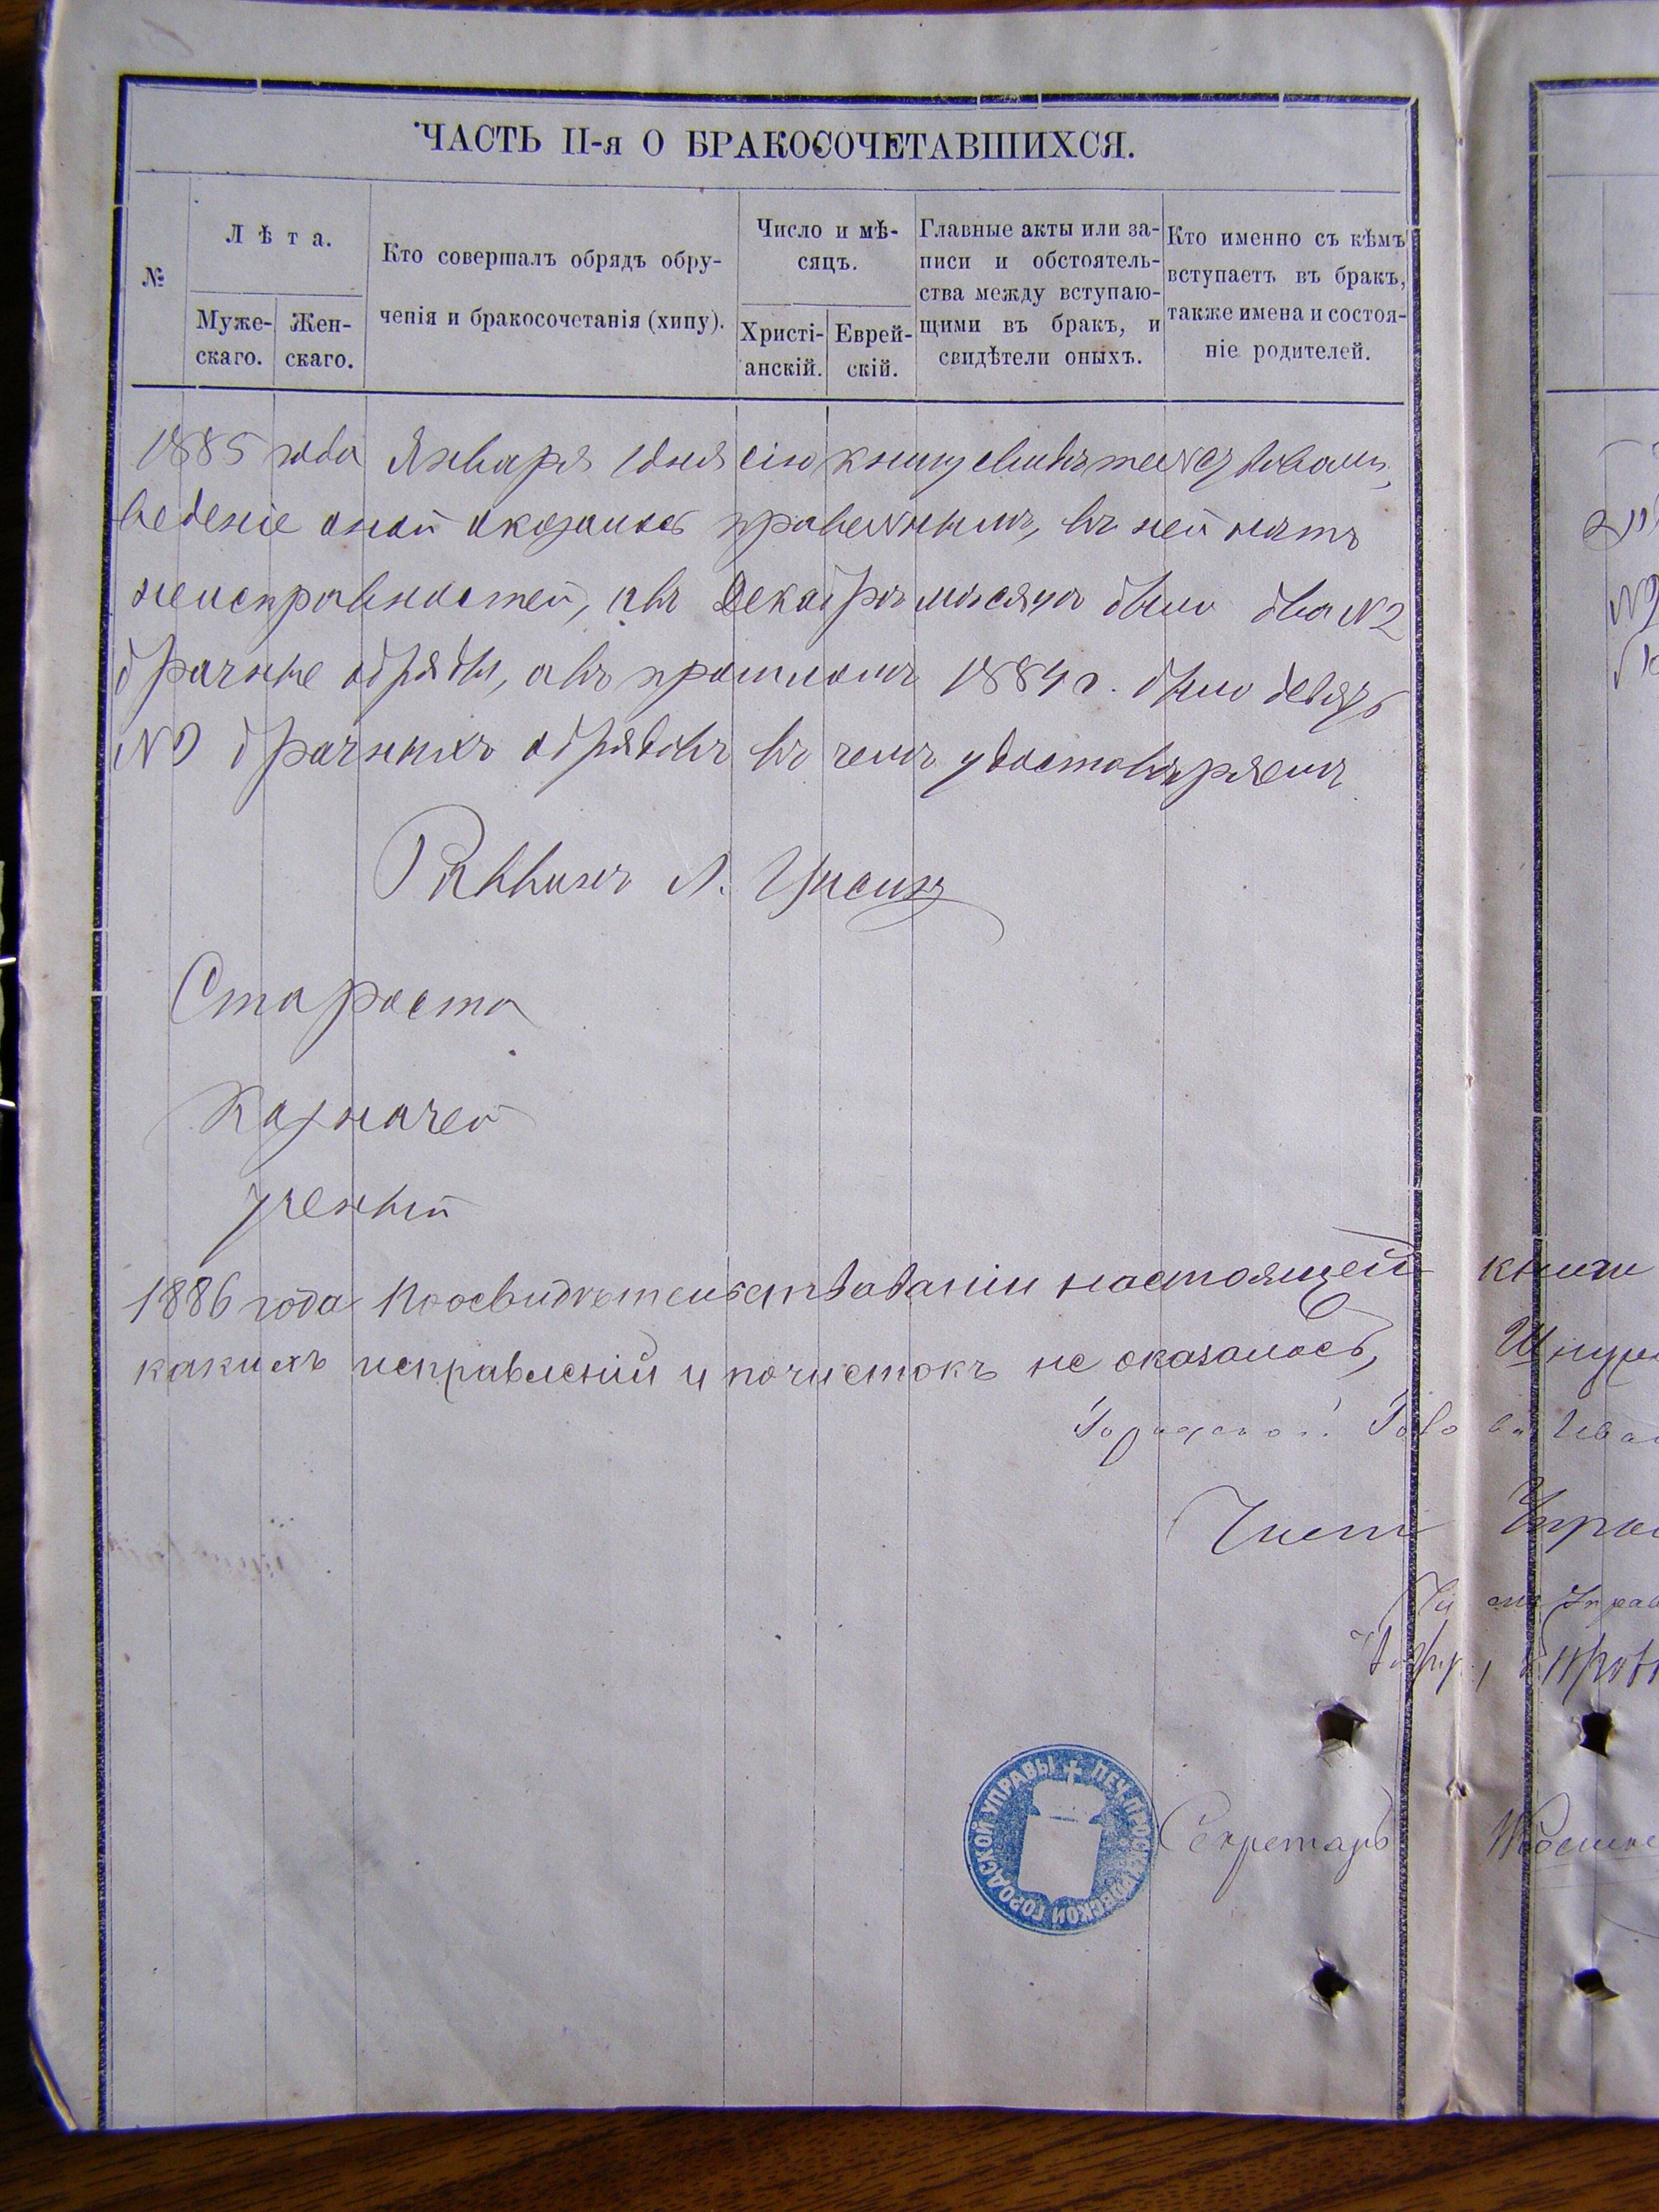 ЧАСТЬ II-я О БРАКОСОЧЕТАВШИХСЯ.
№
Лѣта.
Муже-
скаго.
Жен-
скаго.
Кто совершалъ обрядъ обру-
ченія и бракосочетанія (хипу).
Число и мѣ-
сяцъ.
Христі-
анскій.
Еврей-
скій.
Главные акты или за-
писи и обстоятель-
ства между вступаю-
щими въ бракъ, и
свидѣтели оныхъ.
Кто именно съ кѣмъ
вступаетъ въ бракъ,
также имена и состоя-
ніе родителей.
1885 года Января 1 дня сію книгу свидѣтельствовали,
веденіе оной оказалось правельнымъ, въ ней нѣтъ
неисправностей, а въ Декабрѣ мѣсяцѣ было два №2
брачные обряды, а въ прошломъ 1884 г. было девять
№9 брачныхъ обрядовъ въ чемъ удостовѣряемъ
Раввинъ
Староста
Казначей
Ученый
1886 года По освидѣтельствованіи настоящей книги
какихъ исправленій и почистокъ не оказалось,
Городской Голова
Члены
Секретарь
ПЕЧ. ПРОСКУРОВСКОЙ ГОРОДСКОЙ УПРАВЫ